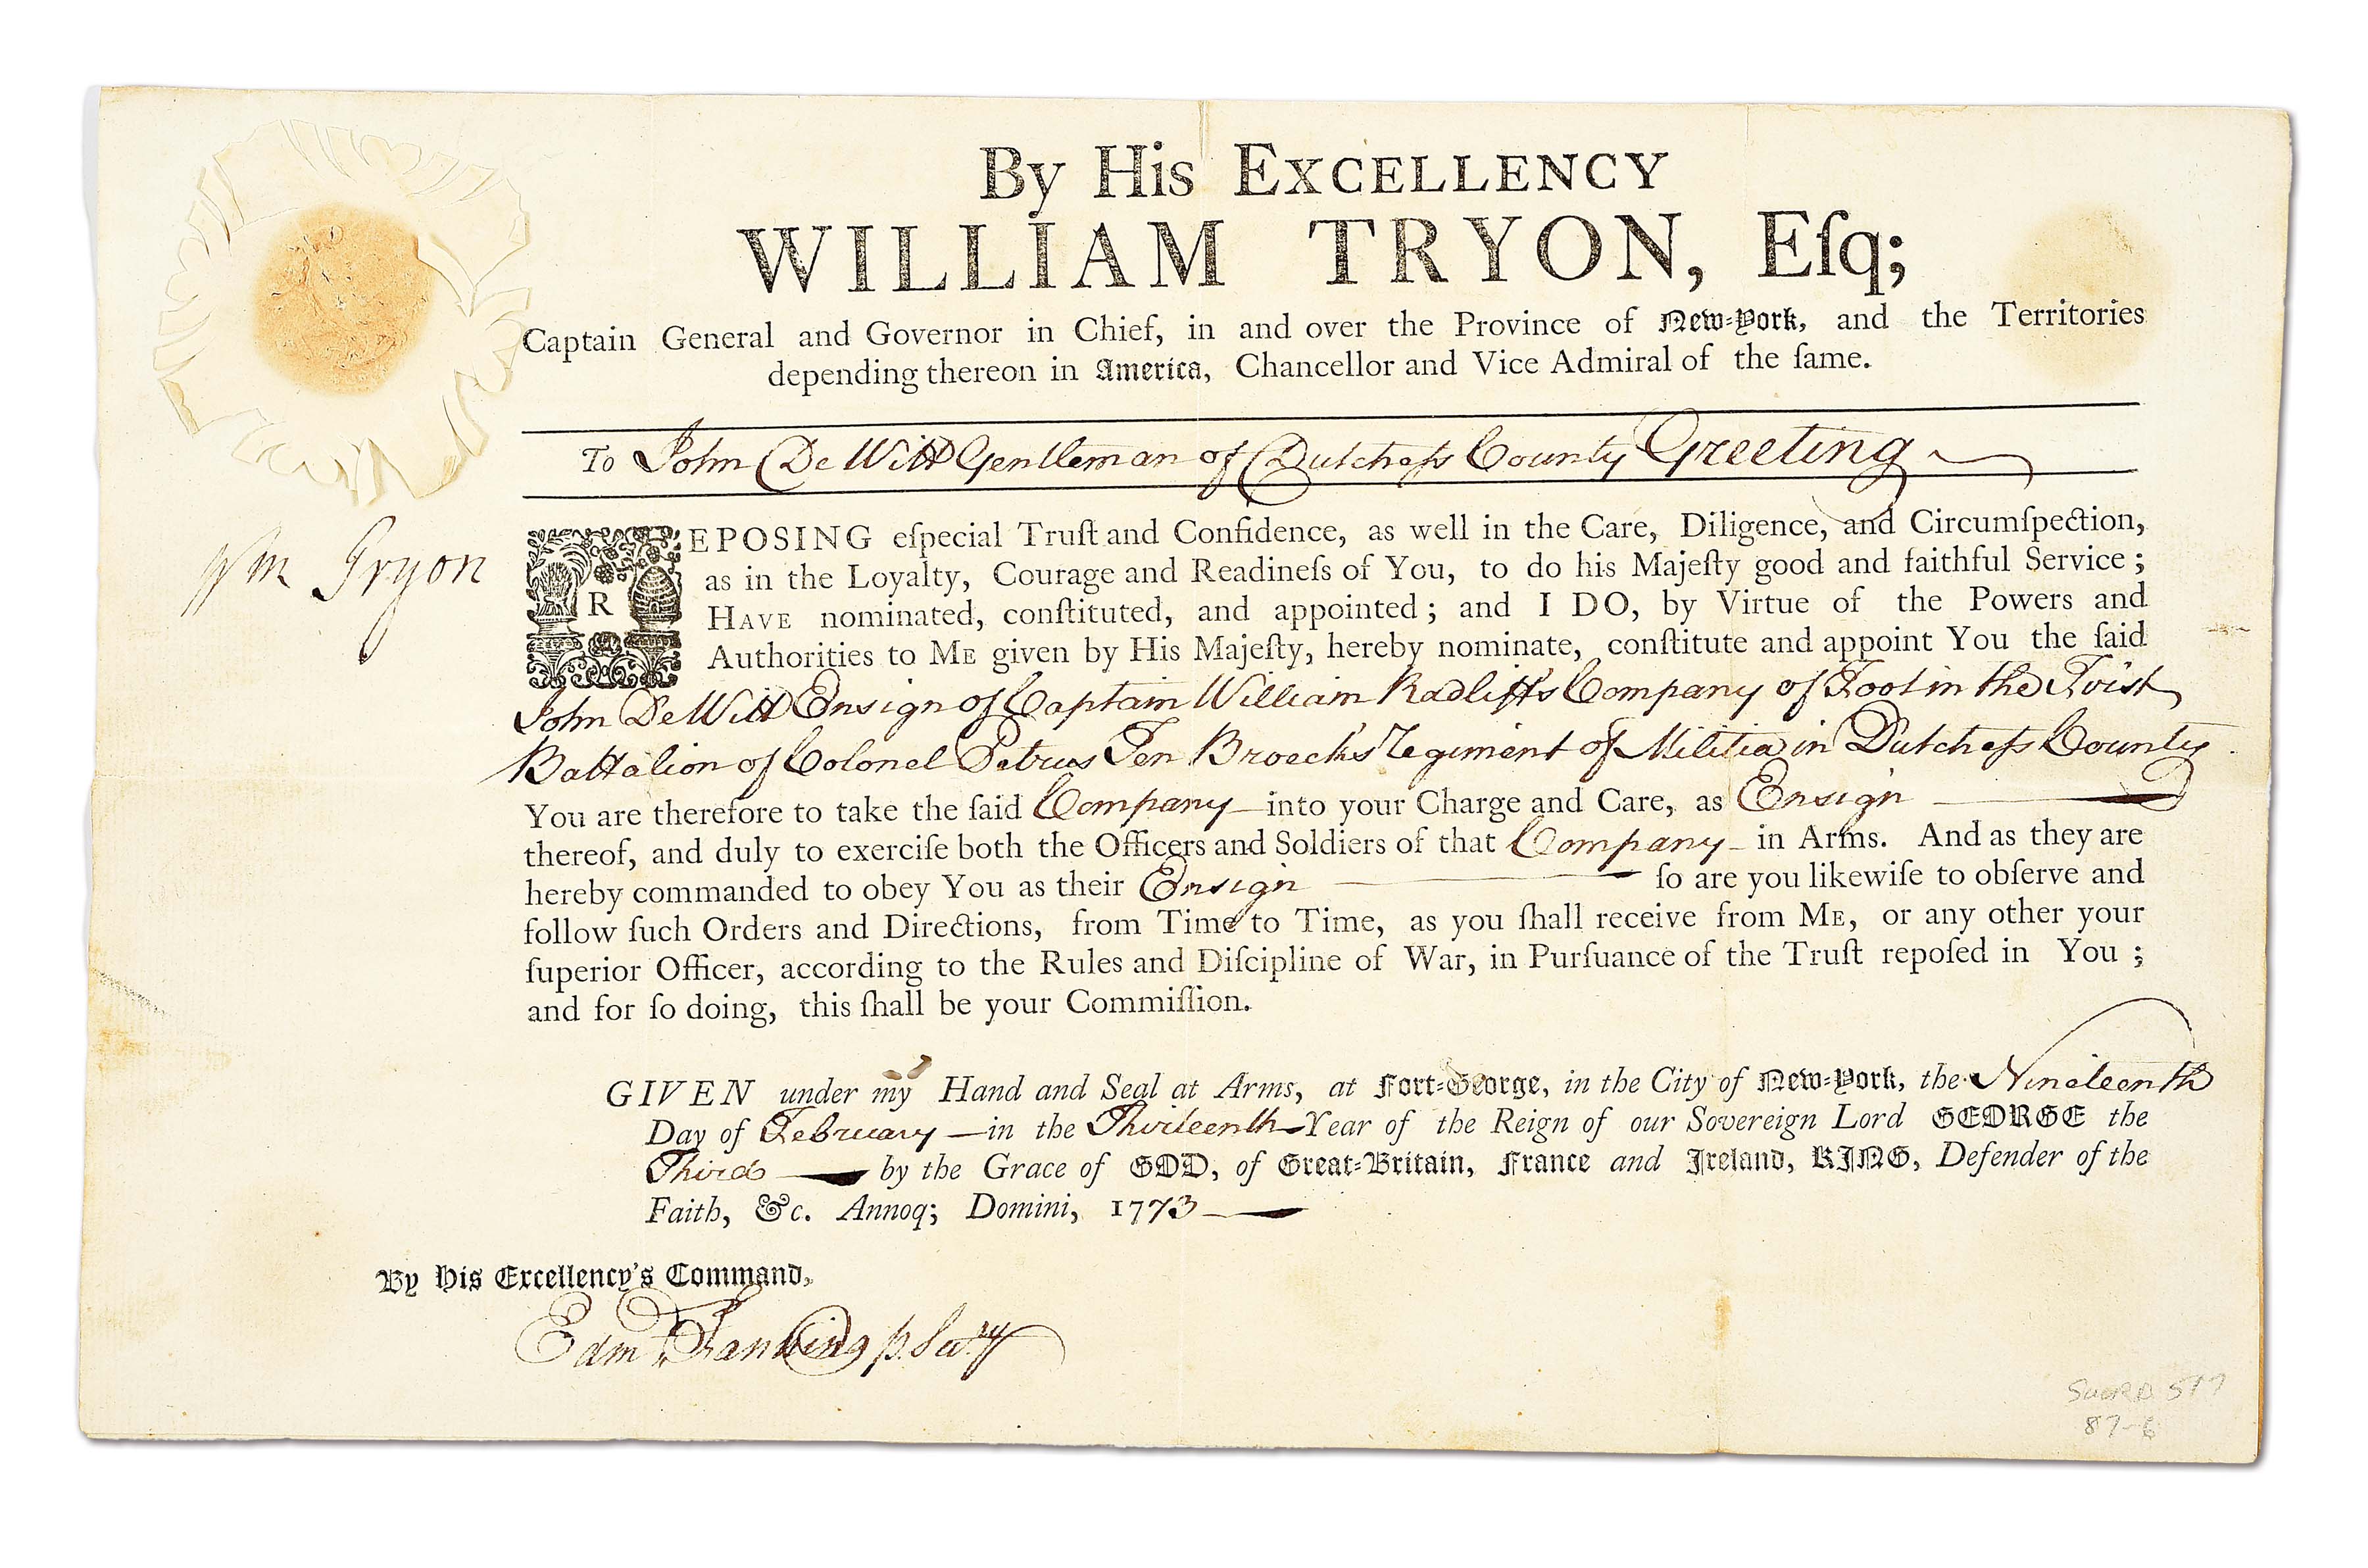 By His EXCELLENCY
WILLIAM TRYON, Eſq;
Captain General and Governor in Chief, in and over the Province of New-York, and the Territories
depending thereon in America, Chancellor and Vice Admiral of the ſame.
To John De Witt Gentleman of Dutcheſs County Greeting
Wm Tryon
REPOSING eſpecial Truſt and Confidence, as well in the Care, Diligence, and Circumſpection,
as in the Loyalty, Courage and Readineſs of You, to do his Majeſty good and faithful Service;
HAVE nominated, conſtituted, and appointed; and I DO, by Virtue of the Powers and
Authorities to ME given by His Majeſty, hereby nominate, conſtitute and appoint You the ſaid
John De Witt Ensign of Captain William Radliff's Company of Foot in the First
Battalion of Colonel Petrus Ten Broeck's Regiment of Militia in Dutcheſs County
You are therefore to take the ſaid Company into your Charge and Care, as Ensign
thereof, and duly to exerciſe both the Officers and Soldiers of that Company in Arms. And as they are
hereby commanded to obey You as their Ensign ſo are you likewiſe to obſerve and
follow ſuch Orders and Directions, from Time to Time, as you ſhall receive from ME, or any other your
ſuperior Officer, according to the Rules and Diſcipline of War, in Purſuance of the Truſt repoſed in You;
and for ſo doing, this ſhall be your Commiſſion.
GIVEN under my Hand and Seal at Arms, at Fort-George, in the City of New-York, the Nineteenth
Day of February in the Thirteenth Year of the Reign of our Sovereign Lord GEORGE the
Third by the Grace of GOD, of Great-Britain, France and Ireland, KING, Defender of the
Faith, &c. Annoq; Domini, 1773
By His Excellency's Command,
Edm Fanning p. Secry
SWORD 517
87-6